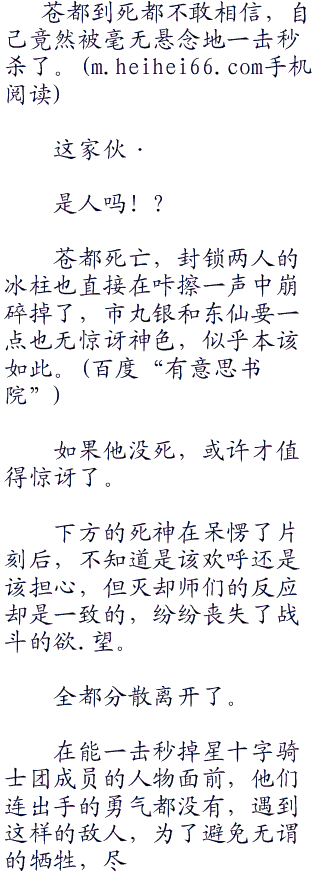 苍都到死都不敢相信，自
己竟然被毫无悬念地一击秒
杀了。(m.heihei66.com手机
阅读)
这家伙·
是人吗！？
苍都死亡，封锁两人的
冰柱也直接在咔擦一声中崩
碎掉了，市丸银和东仙要一
点也无惊讶神色，似乎本该
如此。(百度“有意思书
院”)
如果他没死，或许才值
得惊讶了。
下方的死神在呆愣了片
刻后，不知道是该欢呼还是
该担心，但灭却师们的反应
却是一致的，纷纷丧失了战
斗的欲.望。
全都分散离开了。
在能一击秒掉星十字骑
士团成员的人物面前，他们
连出手的勇气都没有，遇到
这样的敌人，为了避免无谓
的牺牲，尽